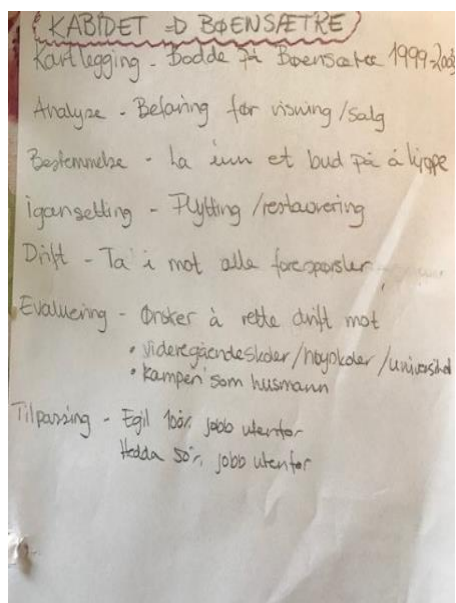 KABIDET => BØENSÆTRE
Kartlegging - Bodde på Bøensætre 1999-2003
Analyse - Befaring før visning/salg
Bestemmelse - La inn et bud på å kjøpe
Igansetting - Flytting/restaurering
Drift - Ta i mot alle forespørsler
Evaluering - Ønsker å rette drift mot
• videregåendeskoler/høyskoler/universitet
• Kampen som husmann
Tilpassing - Egil 100% jobb utenfor
Hedda 50% jobb utenfor